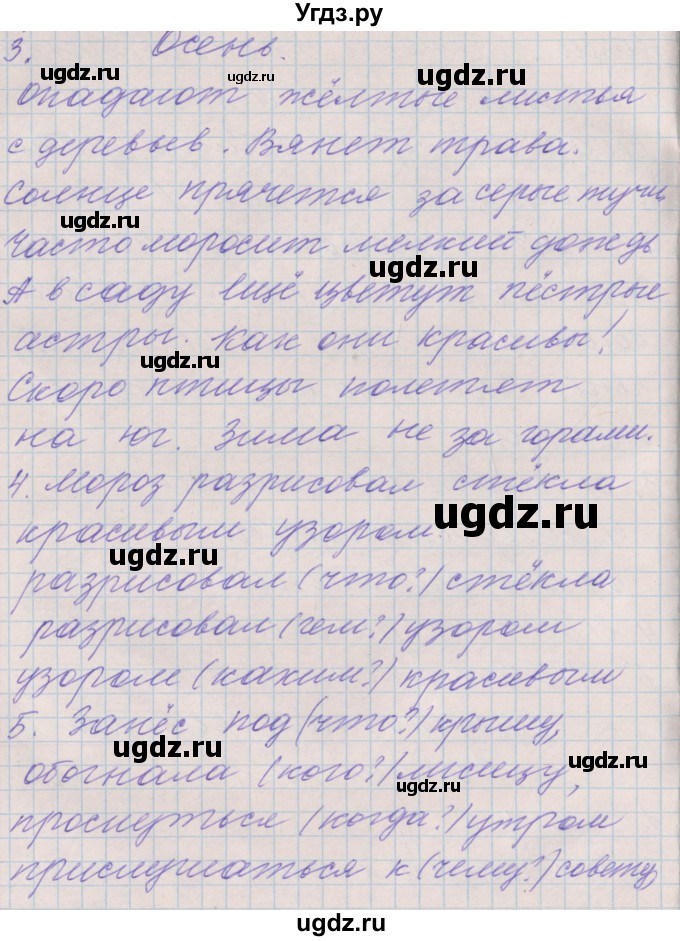 Угдз.ру
3. Осень.
Опадают жёлтые листья
с деревьев. Вянет трава.
Солнце прячется за серые тучи
Часто моросит мелкий дождь
А в саду ещё цветут пёстрые
астры. Как они красивы!
Скоро птицы полетят
на юг. Зима не за горами.
4. Мороз разрисовал стёкла
красивым узором.
разрисовал (что?) стёкла
разрисовал (чем?) узором
узором (каким?) красивым
5. Занёс под (что?) крышу,
обогнала (кого?) лисицу,
проснуться (когда?) утром
прислушаться к (чему?) совету
ugdz.ru
ugdz.ru
ugdz.ru
ugdz.ru
ugdz.ru
ugdz.ru
ugdz.ru
ugdz.ru
ugdz.ru
ugdz.ru
ugdz.ru
ugdz.ru